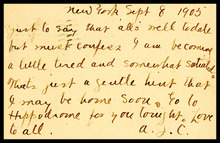 New York Sept 8 1905
just to say that all's well to date
but must confess I am becoming
a little tired and somewhat
Thats just a gentle hint that
I may be home soon. Go to
Hippodrome for you tonight. Love
to all. A. J. C.